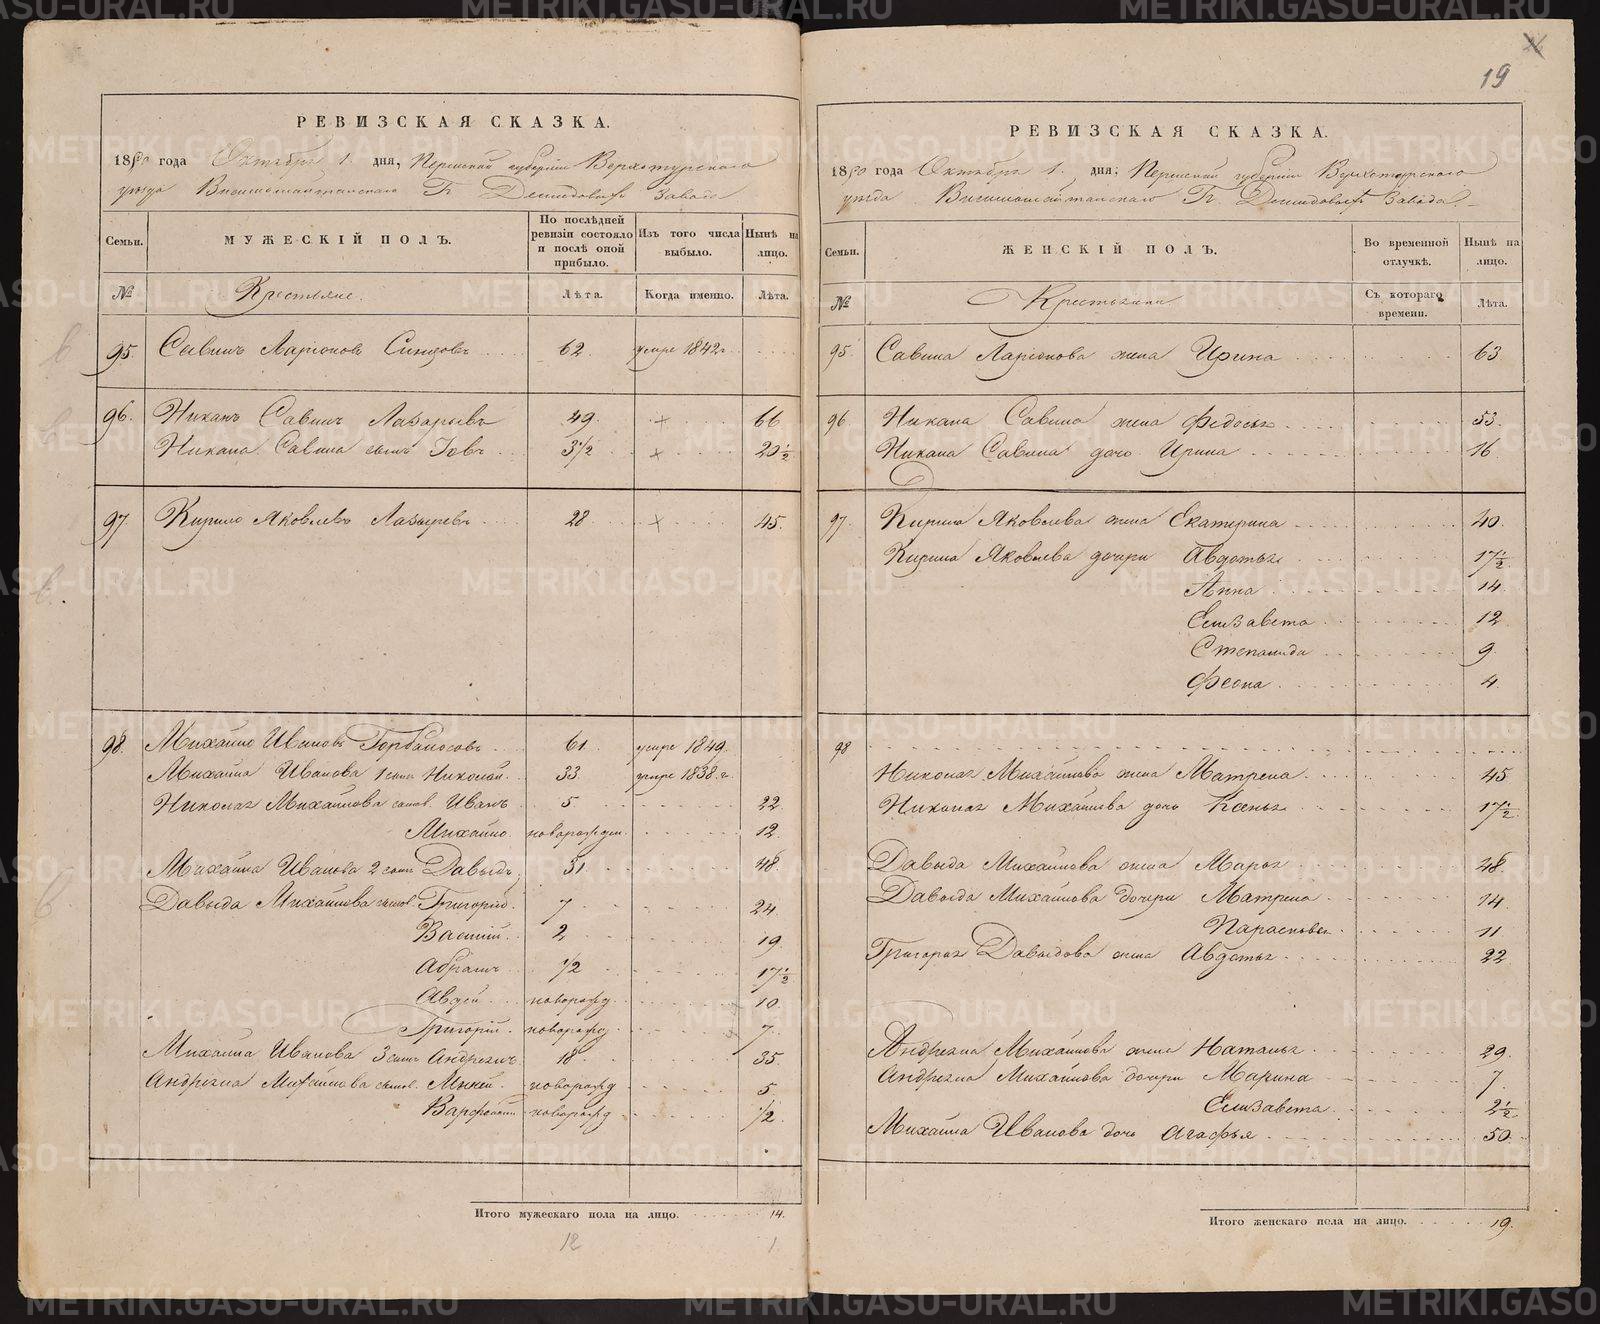 РЕВИЗСКАЯ СКАЗКА.
1850 года Октября 1. дня, Пермской губернии Верхотурского
уезда Висимошайтанского Гг. Демидовых завода
Семьи. МУЖЕСКІЙ ПОЛЪ. По послѣдней ревизіи состояло и послѣ оной прибыло. Изъ того числа выбыло. Нынѣ на лицо.
№ Крестьяне. Лѣта. Когда именно. Лѣта.
95. Савинъ Ларіоновъ 62. умре 1842 г.
96. Никанъ Савинъ Лазаревъ 49. 66
Никана Савина сынъ Іовъ 3 1/2 20 1/2
97. Кирило Яковлевъ Лазаревъ 28 45.
98. Михайло Ивановъ Горбаносовъ 61. умре 1849.
Михайла Иванова 1 сынъ Николай 33. умре 1838. г.
Николая Михайлова сынов. Иванъ 5. 22
Михайло. новорожден. 12.
Михайла Иванова 2 сынъ Давыдъ 31. 48.
Давыда Михайлова сынов. Григорій. 7 24
Василій. 2 19.
Абрамъ 1/2 17 1/2
Авдей новорожд. 10.
Григорій. новорожд. 7
Михайла Иванова 3 сынъ Андреянъ 18 35.
Андреяна Михайлова сынов. новорожд 5
Варфоломей новорожд 1/2
Итого мужескаго пола на лицо. 14.
12 1
19
РЕВИЗСКАЯ СКАЗКА.
1850 года Октября 1. дня; Пермской губерніи Верхотурского
уезда Висимошайтанского Гг. Демидовыхъ Завода
Семьи. ЖЕНСКІЙ ПОЛЪ. Во временной отлучкѣ. Нынѣ на лицо.
№ Крестьянки Съ котораго времени. Лѣта.
95. Савина Ларіонова жена Ирина 63.
96. Никана Савина жена Федосья 53.
Никана Савина дочь Ирина 16
97. Кирила Яковлева жена Екатерина 40.
Кирила Яковлева дочери Авдотья 17 1/2
Анна 14.
Елизавета 12
Степанида 9.
Феона 4.
98
Николая Михайлова жена Матрена 45
Николая Михайлова дочь Ксенья 17 1/2
Давыда Михайлова жена Марья 48.
Давыда Михайлова дочери Матрена 14.
Парасковья 11
Григорья Давыдова жена Авдотья 22
Андреяна Михайлова жена Наталья 29.
Андреяна Михайлова дочери Марина 7.
Елизавета 2 1/2
Михайла Иванова дочь Агафья 50.
Итого женскаго пола на лицо. 19.
METRIKI.GASO-URAL.RU